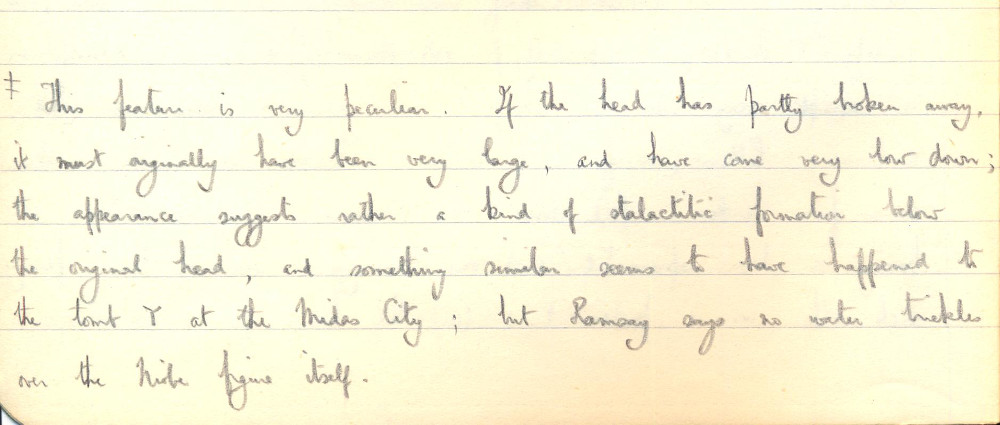 ‡ This feature is very peculiar. If the head has partly broken away,
it must orginally have been very large, and have come very low down;
the appearance suggests rather a kind of stalactitic formation below
the original head, and something similar seems to have happened to
the tomb Y at the Midas City; but Ramsay says no water trickles
over the Niobe figure itself.